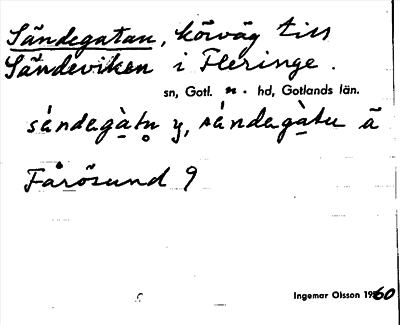 Sändegatan, körväg till
Sändeviken i Fleringe.
sn, Gotl. n. hd, Gotlands län.
sándagàtn̥ y, sándagàtu ä
Fårösund 9
Ingemar Olsson 1960